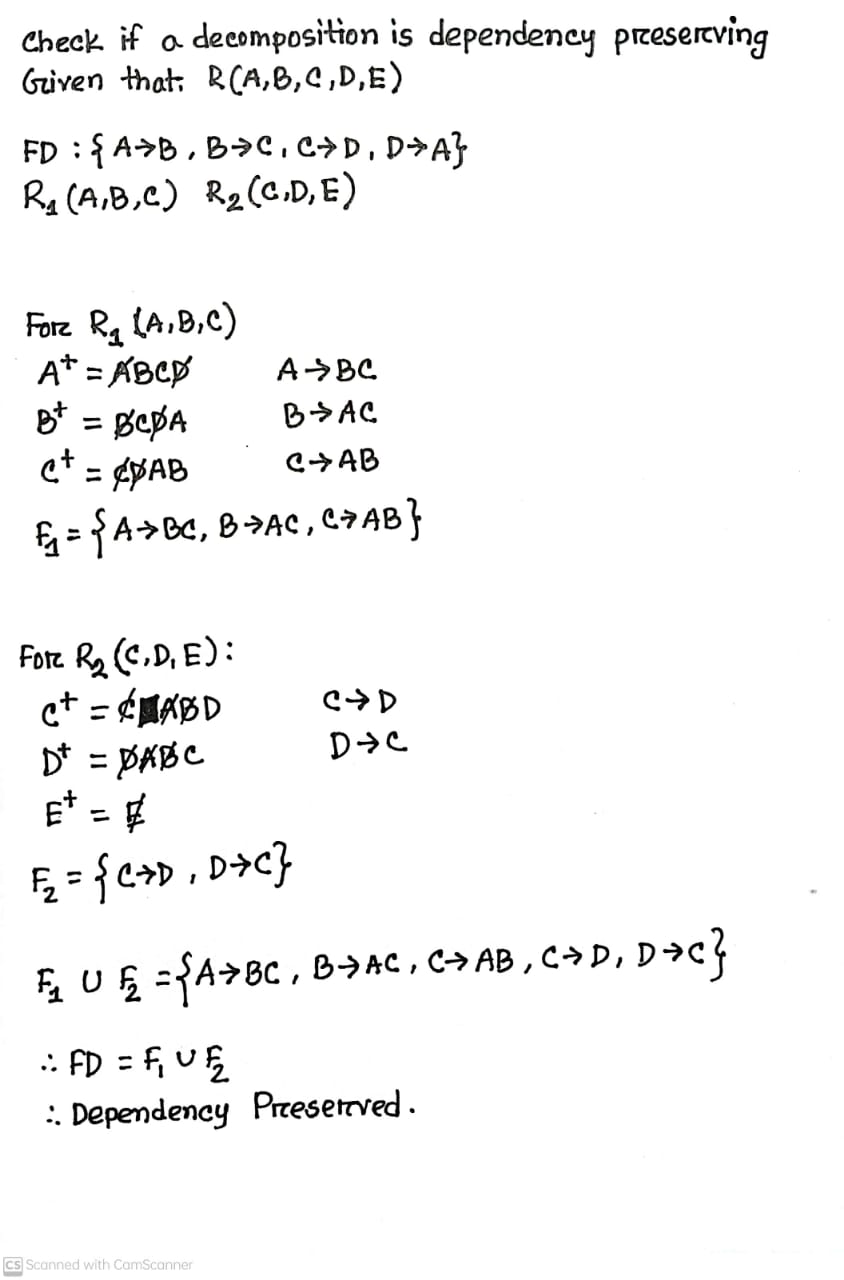 Check if a decomposition is dependency preserving
Given that: R(A,B,C,D,E)
FD : {A→B, B→C, C→D, D→A}
R₁ (A,B,C) R₂ (C,D,E)
For R₁ (A,B,C)
A⁺ = ABCD A→BC
B⁺ = BCDA B→AC
C⁺ = CDAB C→AB
F₁ = {A→BC, B→AC, C→AB}
For R₂ (C,D,E):
C⁺ = CABD C→D
D⁺ = DABC D→C
E⁺ = E
F₂ = {C→D, D→C}
F₁ ∪ F₂ = {A→BC, B→AC, C→AB, C→D, D→C}
∴ FD = F₁ ∪ F₂
∴ Dependency Preserved.
CS Scanned with CamScanner